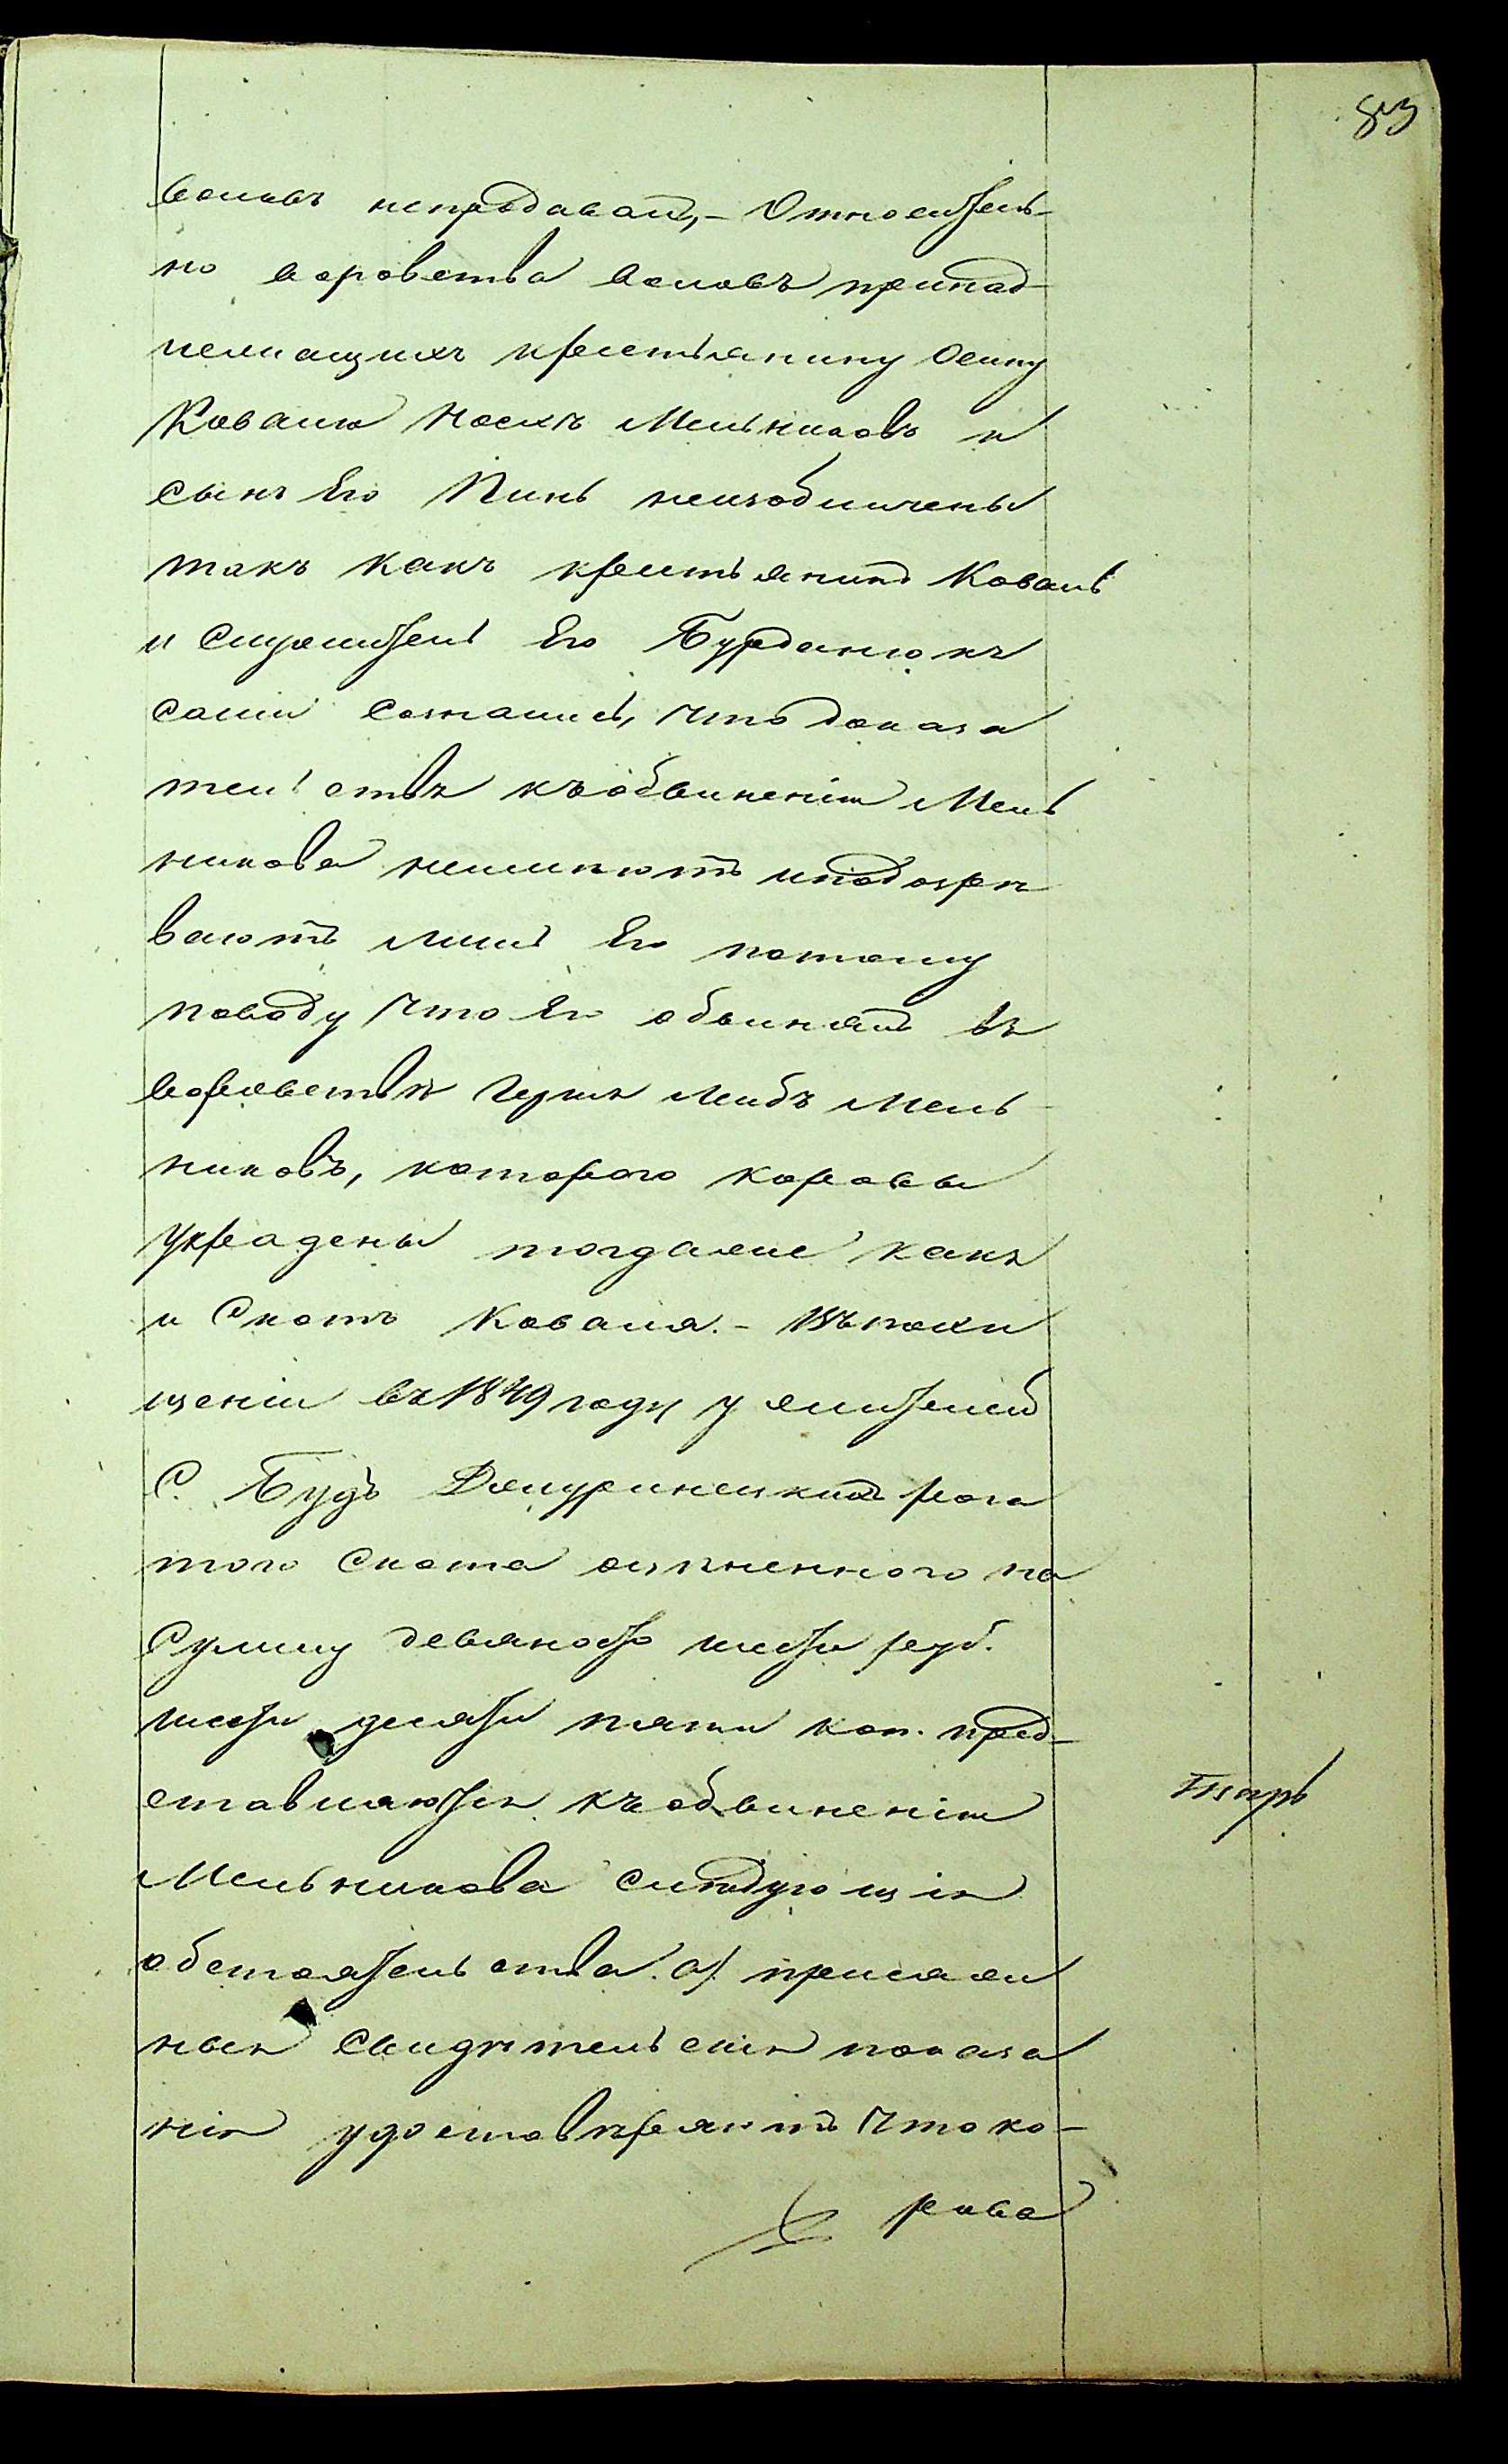 воловъ непродавалъ, – Относитель-
но воровства воловъ принад-
лежащихъ крестьянину Осипу
Ковалю Йосъ Мельниковъ и
сынъ Его Пинь неизобличены
такъ какъ крестьянинъ Коваль
и Служитель Его Бурданюкъ
сами сознались, что доказа
тельствъ къ обвиненію Мель
никова неимѣютъ и подозрѣ
ваютъ лишь Его потому
поводу что Его обвиняетъ въ
воровствѣ Гершъ Лейбъ Мель-
никовъ, которого коровы
украдены тогда же какъ
и Скотъ Коваля. – Въ похи
щеніи въ 1849 году у жителей
С. Будъ рога
того Скота оцѣненного на
Сумму девяносто шесть руб.
шесть десятъ пять коп. пред-
ставляются къ обвиненію
Мельникова слѣдующія
обстоятельства. а/ присяж
ныя Свидѣтельскія показа
нія удостовѣряютъ что ко-
рова